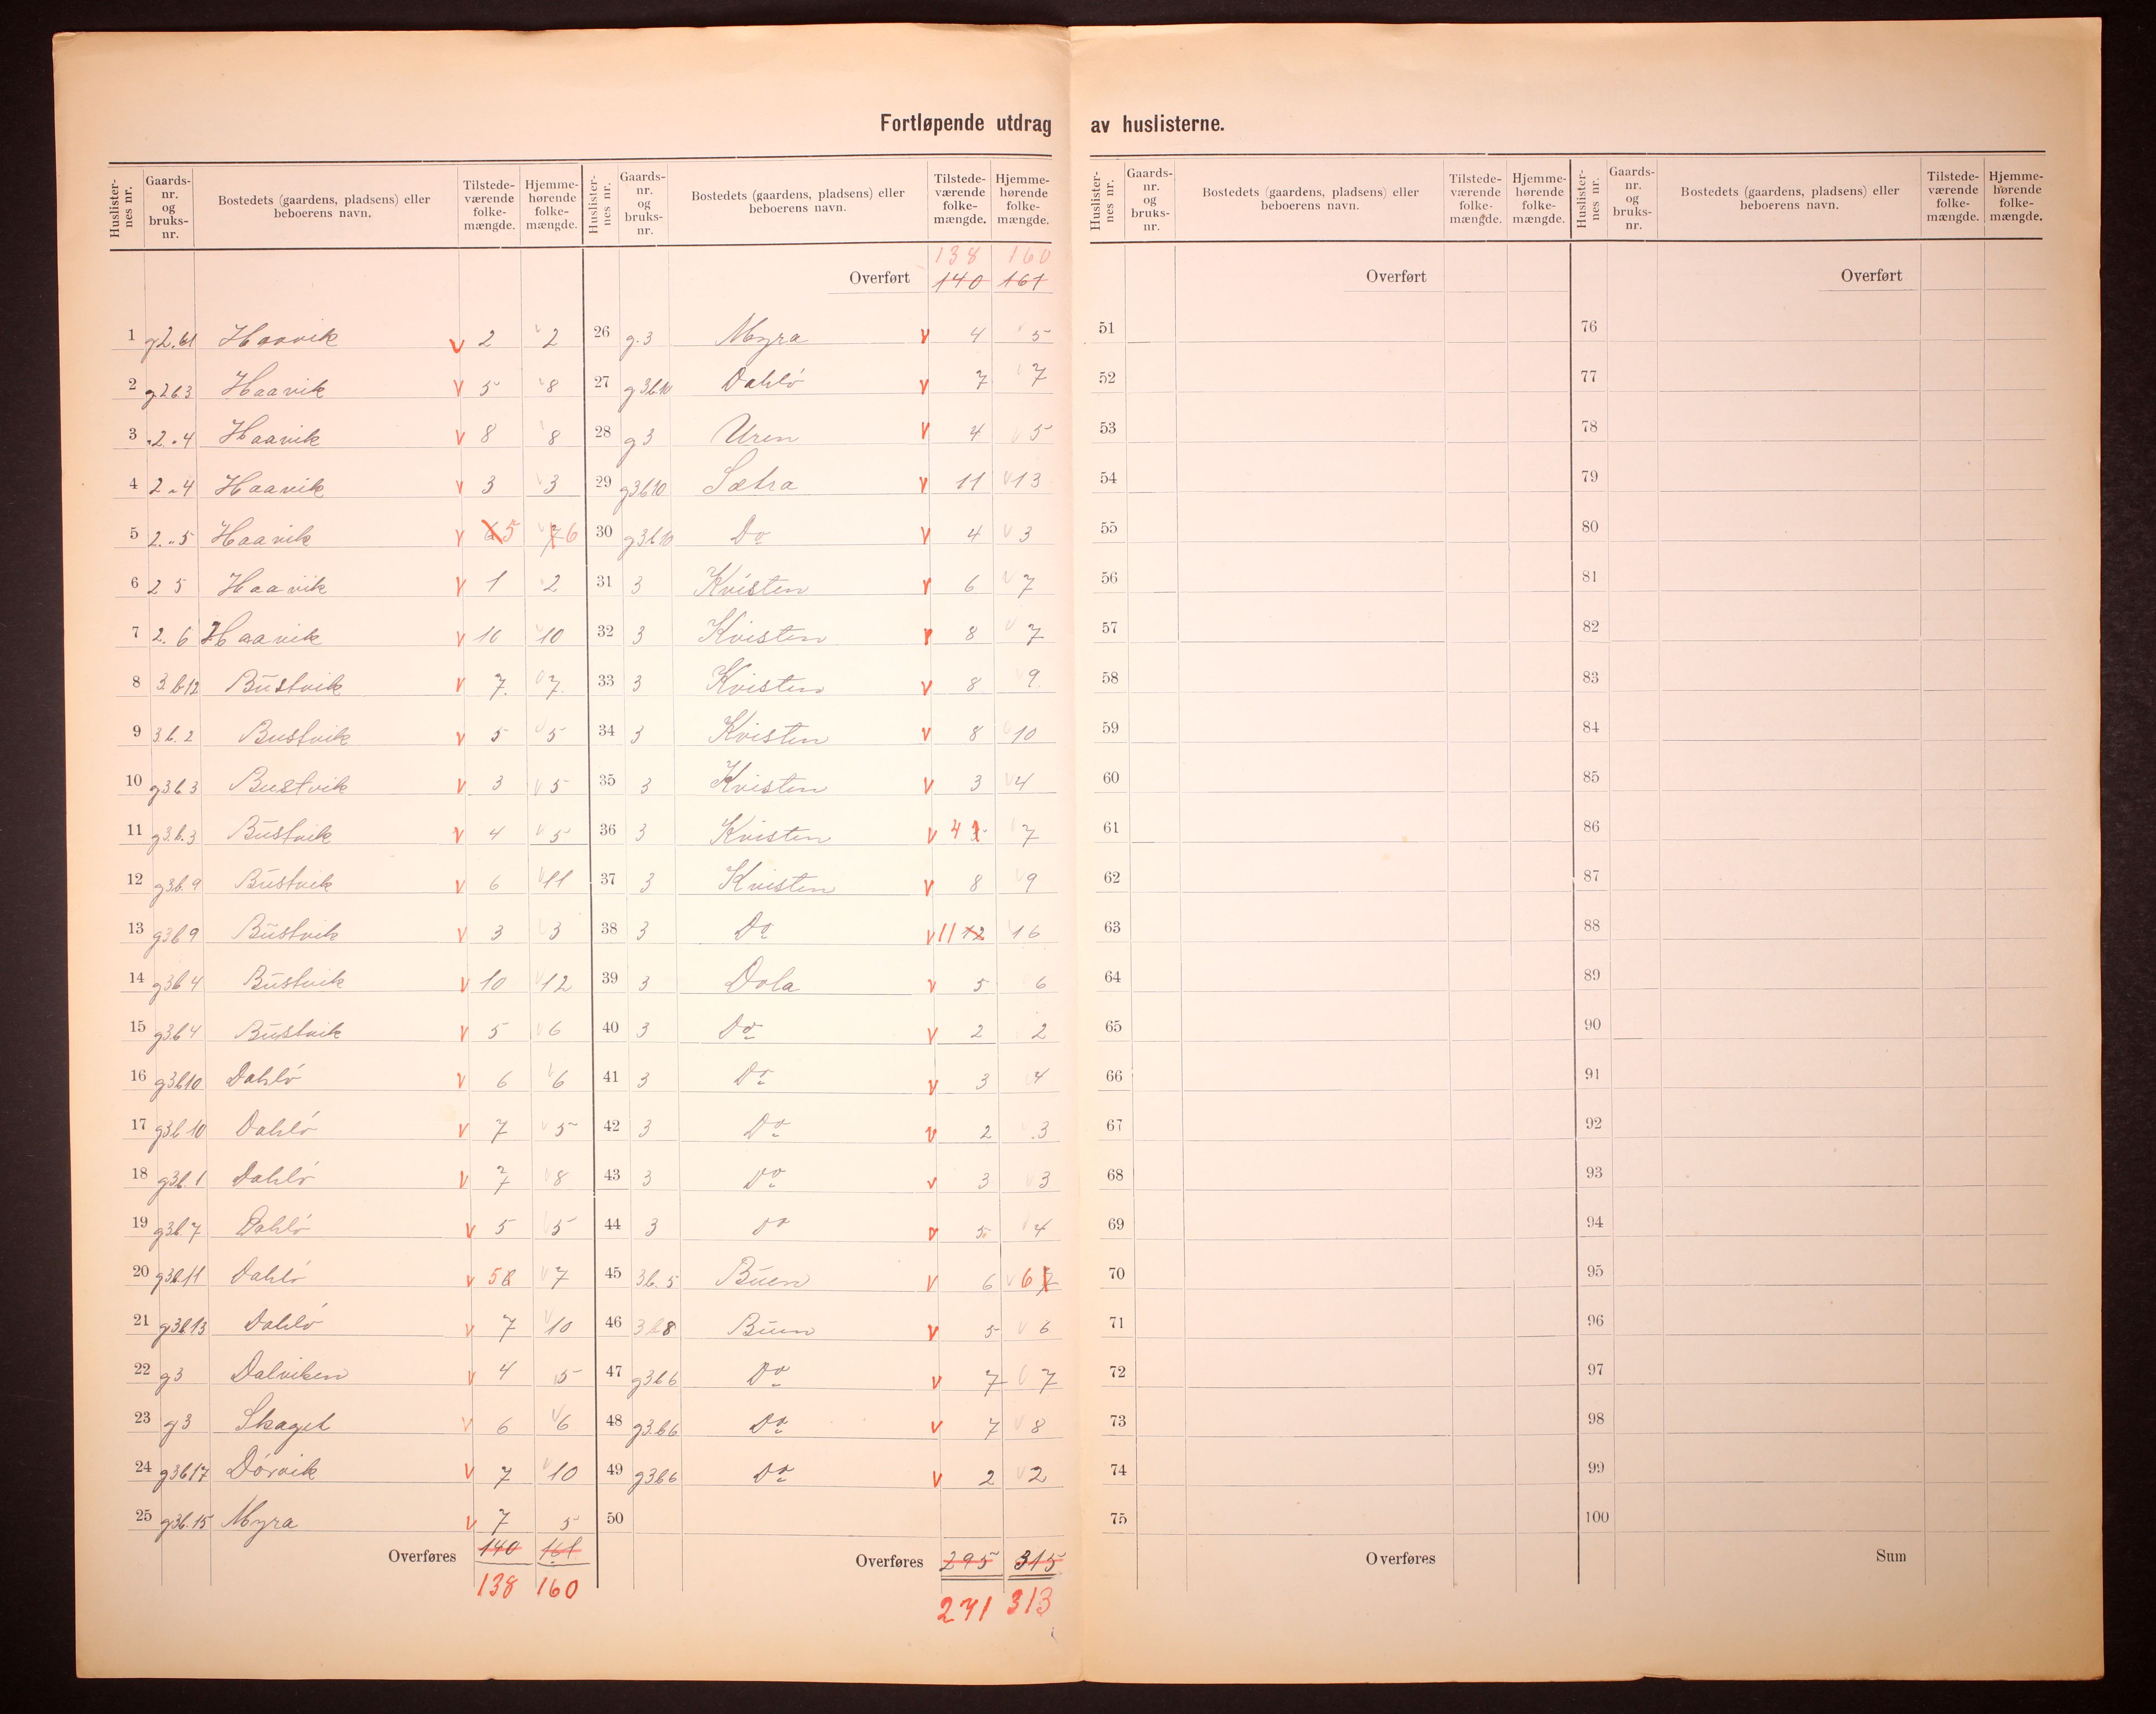 Fortløpende utdrag av huslisterne.
Huslisternes nr. Gaards-nr. og bruks-nr. Bostedets (gaardens, pladsens) eller beboerens navn. Tilstede-værende folke-mængde. Hjemme-hørende folke-mængde.
1 g2.b1 Haavik v 2 v 2
2 g2b3 Haavik v 5 v 8
3 "2"4 Haavik v 8 v 8
4 2"4 Haavik v 3 v 3
5 2."5 Haavik v 6 5 v 7 6
6 2 5 Haavik v 1 v 2
7 2. 6 Haavik v 10 v 10
8 3.b12 Bustvik v 7. v 7.
9 3.b.2 Bustvik v 5 v 5
10 g3b3 Bustvik v 3 v 5
11 g3.b.3 Bustvik v 4 v 5
12 g3.b.9 Bustvik v 6 v 11
13 g3b9 Bustvik v 3 v 3
14 g3b4 Bustvik v 10 v 12
15 g3.b4 Bustvik v 5 v 6
16 g3b10 Dahlö v 6 v 6
17 g3b10 Dahlö v 7 v 5
18 g3b.1 Dahlö v 7 v 8
19 g3b.7 Dahlö v 5 v 5
20 g3b.11 Dahlö v 5 v 7
21 g3b13 Dahlö v 7 v 10
22 g3 Dalviken v 4 5
23 g3 Skaget v 6 v 6
24 g3b17 Dörvik v 7 v 10
25 g3b.15 Myra v 7 5
Overføres 140 161
138 160
Huslisternes nr. Gaards-nr. og bruks-nr. Bostedets (gaardens, pladsens) eller beboerens navn. Tilstede-værende folke-mængde. Hjemme-hørende folke-mængde.
138 160
Overført 140 161
26 g.3 Myra v 4 v 5
27 g3b.10 Dahlö v 7 v 7
28 g3 Uren v 4 v 5
29 g3b10 Sætra v 11 v 13
30 g3b10 Do v 4 v 3
31 3 Kvisten v 6 v 7
32 3 Kvisten v 8 v 7
33 3 Kvisten v 8 v 9.
34 3 Kvisten v 8 v 10
35 3 Kvisten v 3 v 4
36 3 Kvisten v 4 v 7
37 3 Kvisten v 8 v 9
38 3 Do v 11 12 v 16
39 3 Dola v 5 6
40 3 Do v 2 2
41 3 Do v 3 v 4
42 3 Do v 2 v 3
43 3 Do v 3 v 3
44 3 Do v 5 v 4
45 3b.5 Buen v 6 v 6 7
46 3b8 Buen v 5 v 6
47 g3b6 Do v 7 v 7
48 g3.b6 Do v 7 v 8
49 g3b6 Do v 2 v 2
50
Overføres 295 315
271 313
Huslisternes nr. Gaards-nr. og bruks-nr. Bostedets (gaardens, pladsens) eller beboerens navn. Tilstede-værende folke-mængde. Hjemme-hørende folke-mængde.
Overført
51
52
53
54
55
56
57
58
59
60
61
62
63
64
65
66
67
68
69
70
71
72
73
74
75
Overføres
Huslisternes nr. Gaards-nr. og bruks-nr. Bostedets (gaardens, pladsens) eller beboerens navn. Tilstede-værende folke-mængde. Hjemme-hørende folke-mængde.
Overført
76
77
78
79
80
81
82
83
84
85
86
87
88
89
90
91
92
93
94
95
96
97
98
99
100
Sum